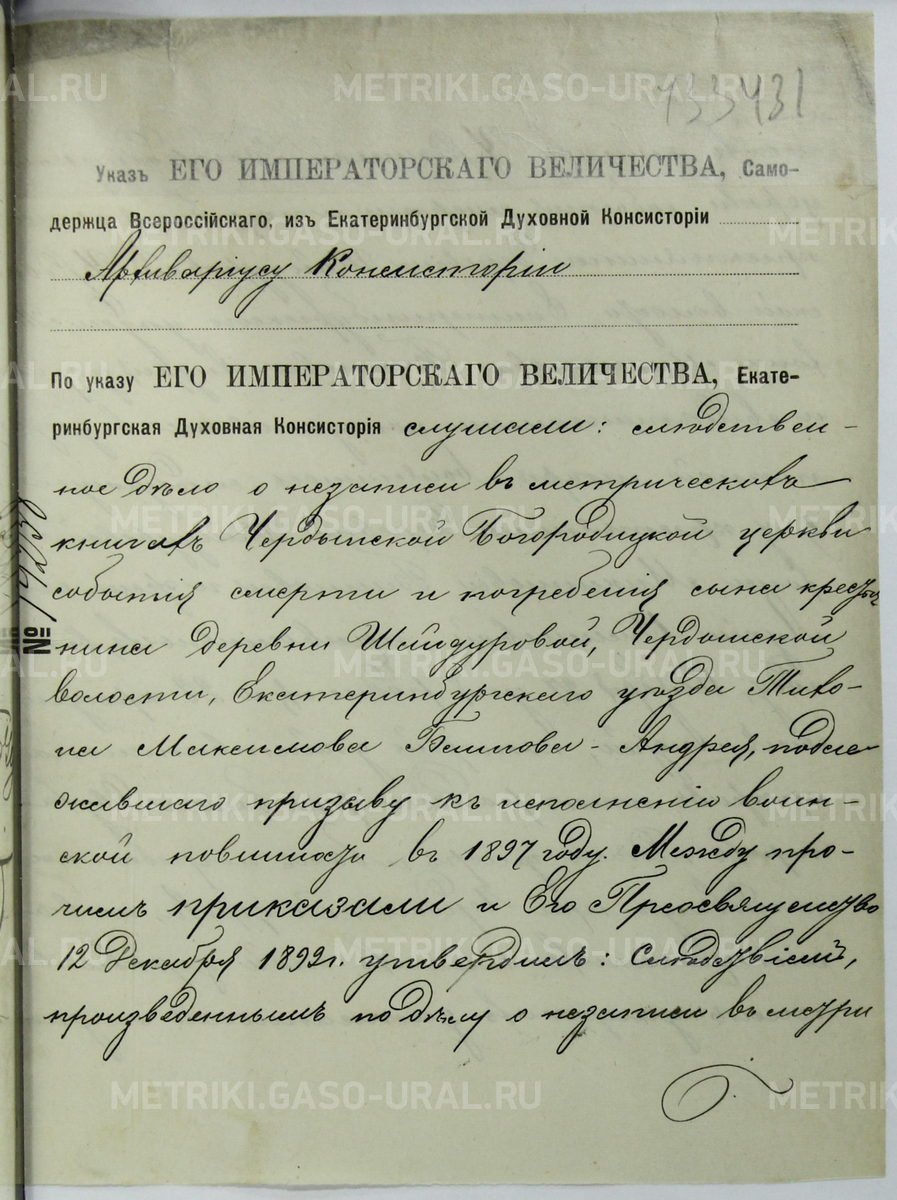 733431
Указъ ЕГО ИМПЕРАТОРСКАГО ВЕЛИЧЕСТВА, Само-
держца Всероссійскаго, изъ Екатеринбургской Духовной Консисторіи
Архиваріусу Консисторіи
По указу ЕГО ИМПЕРАТОРСКАГО ВЕЛИЧЕСТВА, Екате-
ринбургская Духовная Консисторія слушали: слѣдствен-
ное дѣло о незаписи въ метрическихъ
книгахъ Чердынской Богородицкой церкви
событія смерти и погребенія сына крестья
нина деревни Шайдуровой, Чердынской
волости, Екатеринбургскаго уѣзда Тихо-
на Максимова Андрея, подле
жавшаго призыву къ исполненію воин-
ской повинности въ 1897 году. Между про-
чимъ приказали и Его Преосвященство
12 Декабря 1892г. утвердилъ: Слѣдствіемъ,
произведеннымъ по дѣлу о незаписи въ метри
№
METRIKI.GASO-URAL.RU